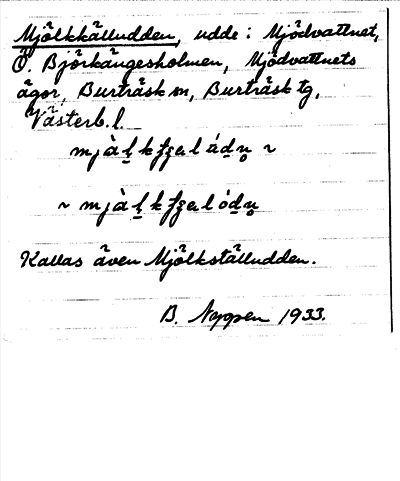 Mjölkkälludden, udde i Mjödvattnet,
Ö. Björkängesholmen, Mjödvattnets
ägor, Burträsk sn, Burträsk tg,
Västerb. l.
Kallas även Mjölkställudden.
B. Nygren 1933.